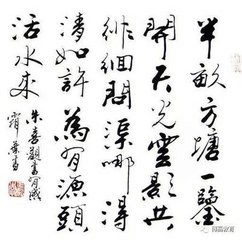 半畝方塘一鑒
開天光雲影共
徘徊問渠哪得
清如許為有源頭
活水來
朱熹觀書有感
霜葉書